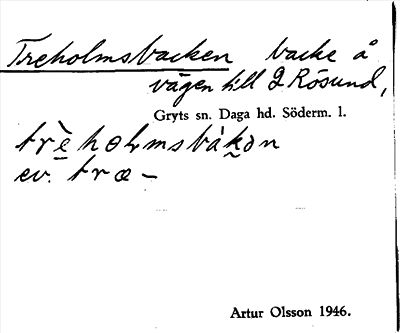 Treholmsbacken backe å
vägen till Rösund,
Gryts sn. Daga hd. Söderm. l.
ev. træ–
Artur Olsson 1946.